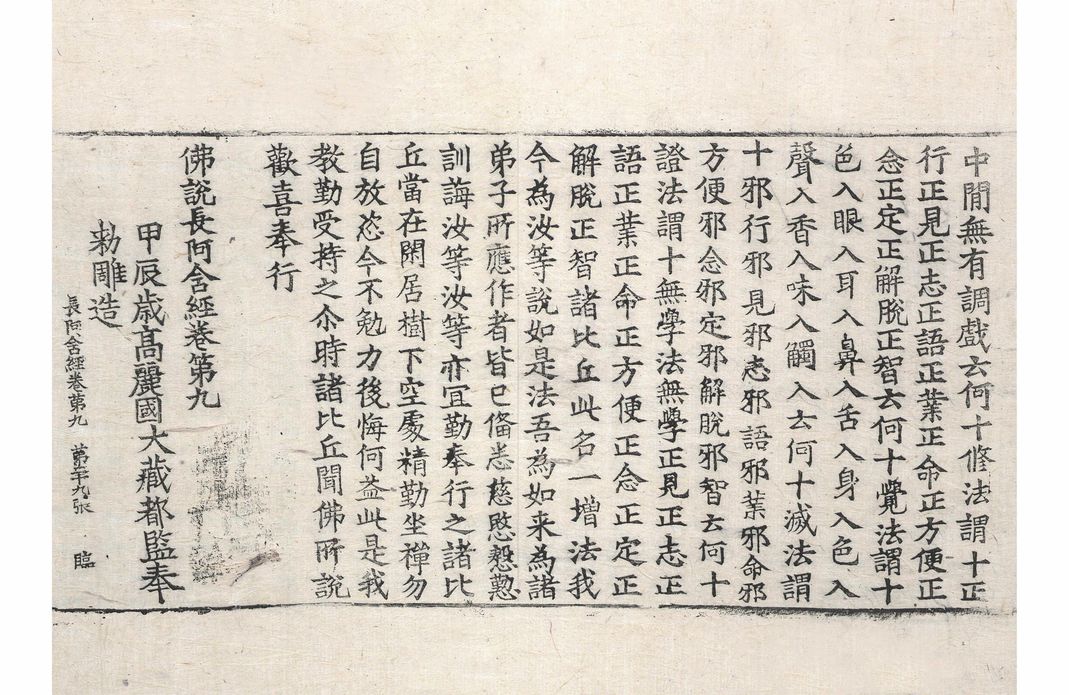 中閒無有調戲云何十修法謂十正
行正見正志正語正業正命正方便正
念正定正解脫正智云何十覺法謂十
色入眼入耳入鼻入舌入身入色入
聲入香入味入觸入云何十滅法謂
十邪行邪見邪志邪語邪業邪命邪
方便邪念邪定邪解脫邪智云何十
證法謂十無學法無學正見正志正
語正業正命正方便正念正定正
解脫正智諸比丘此名一增法我
今為汝等說如是法吾為如来為諸
弟子所應作者皆已俻悉慈愍慇懃
訓誨汝等汝等亦宜勤奉行之諸比
丘當在閑居樹下空處精勤坐禪勿
自放恣今不勉力後悔何益此是我
教勤受持之尒時諸比丘聞佛所說
歡喜奉行
佛說長阿含經卷第九
甲辰歲高麗國大藏都監奉
勅雕造
長阿含經卷第九 第二十九張 臨